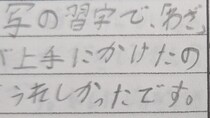 写の習字で、「わざ」
が上手にかけたの
うれしかったです。